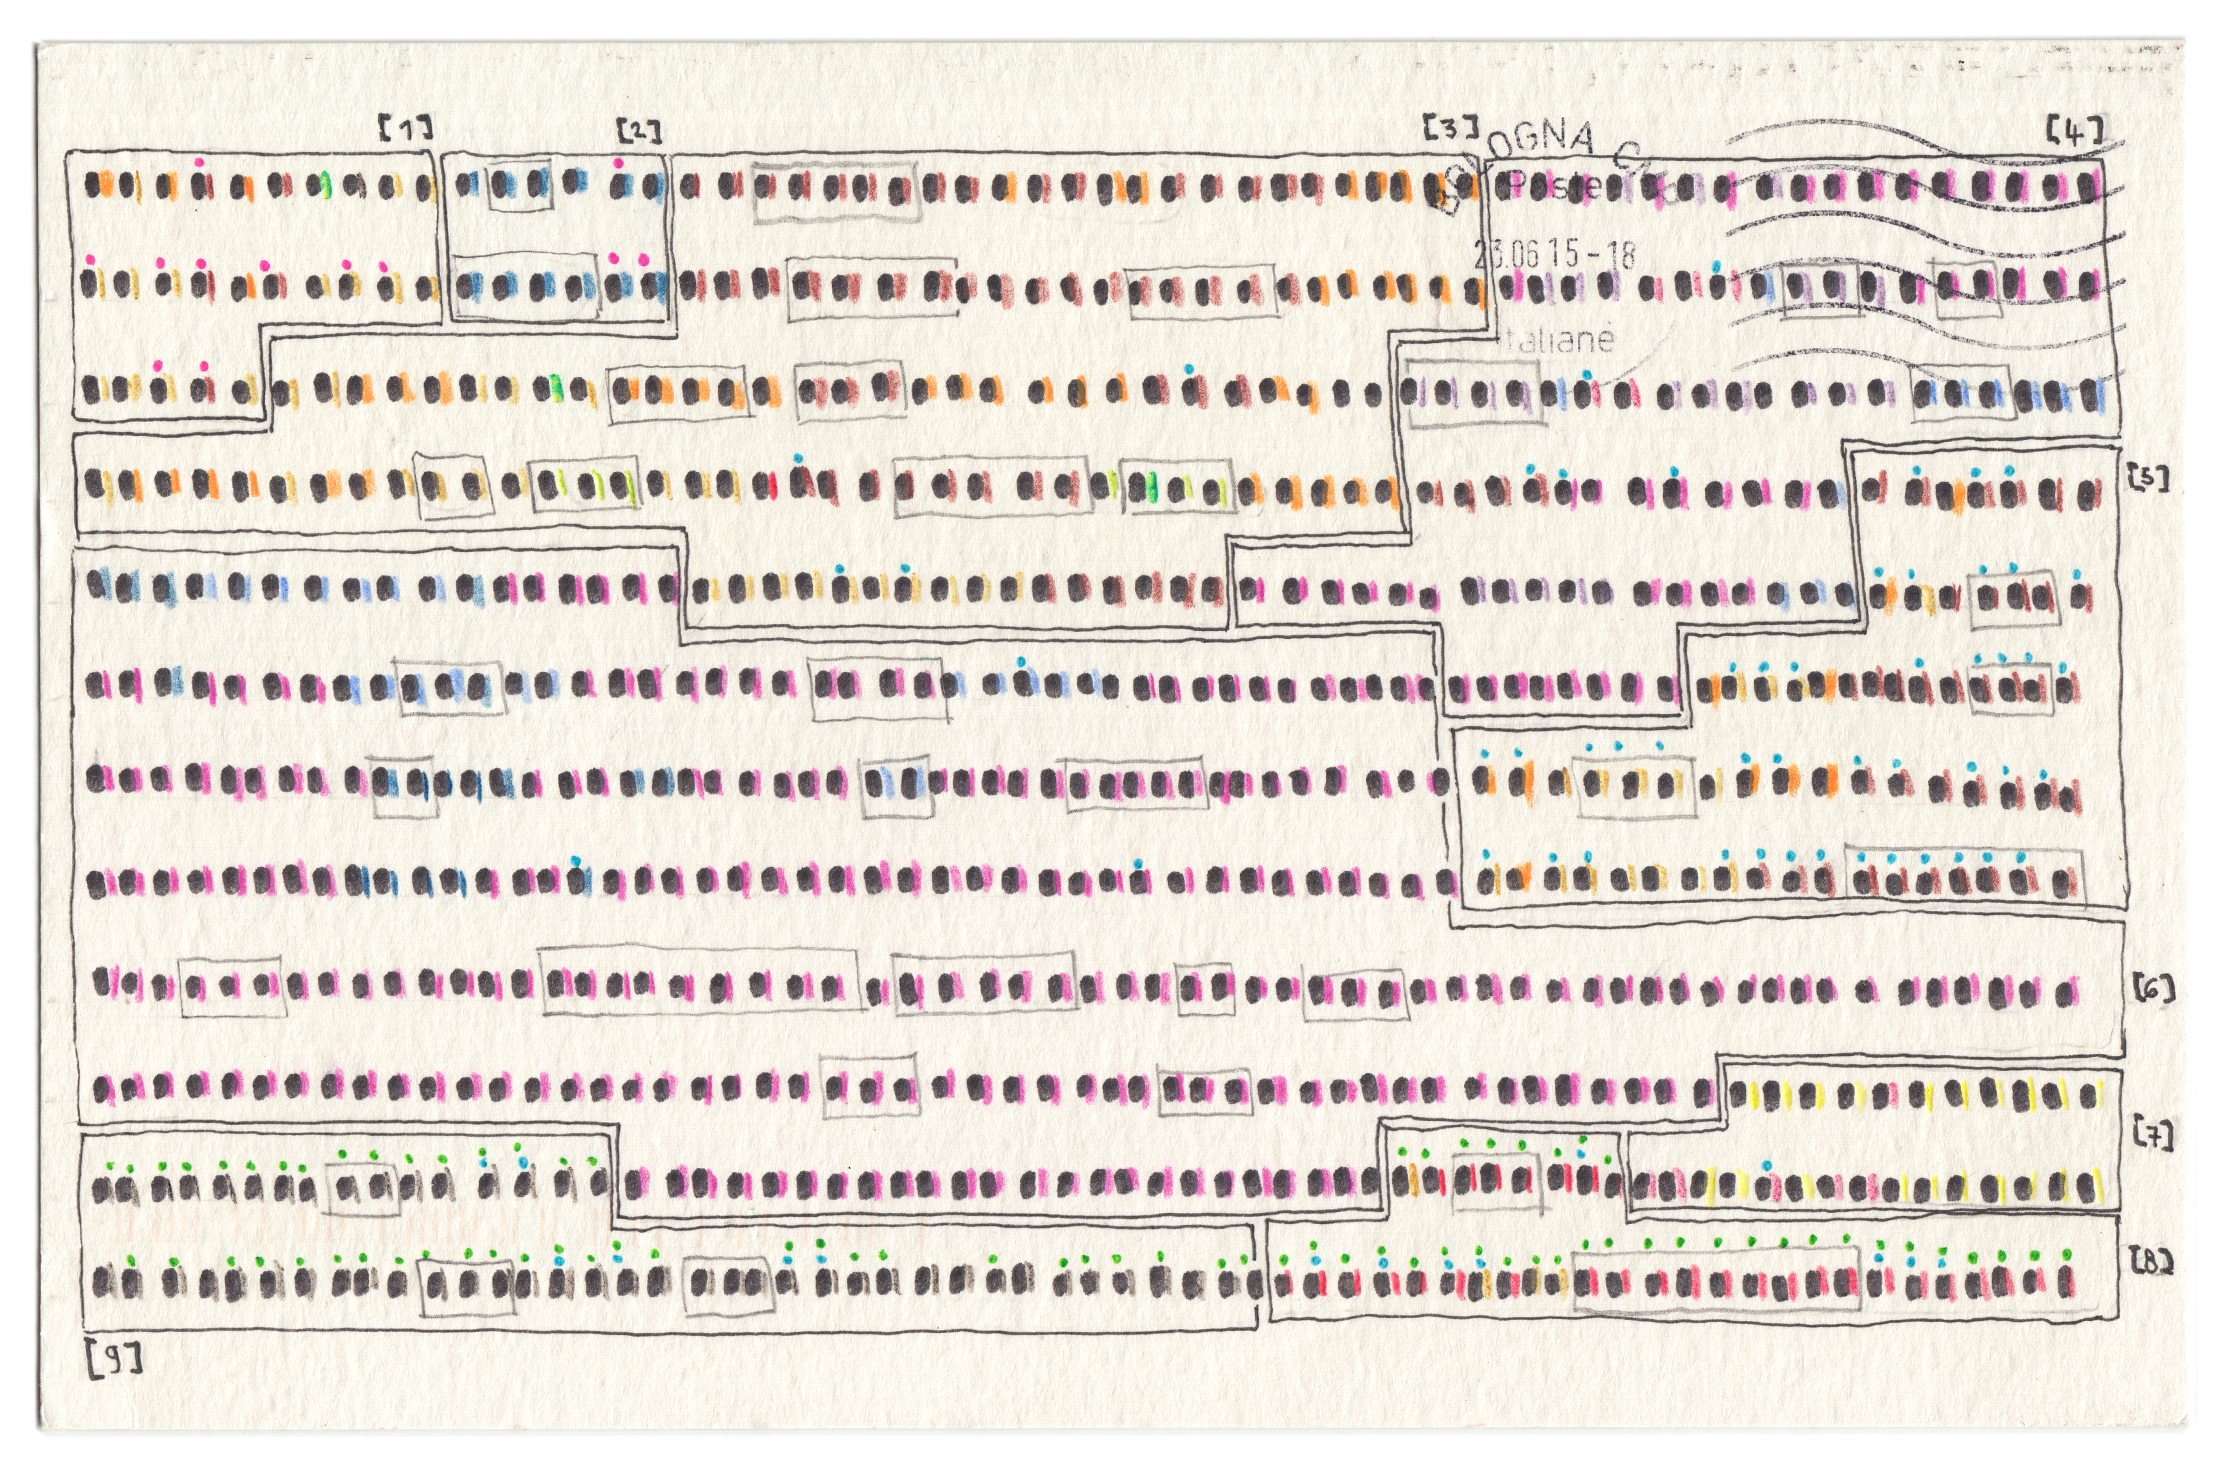 [1]
[2]
[3]
[4]
BOLOGNA C
Poste
23.06 15-18
Italiane
[5]
[6]
[7]
[8]
[9]